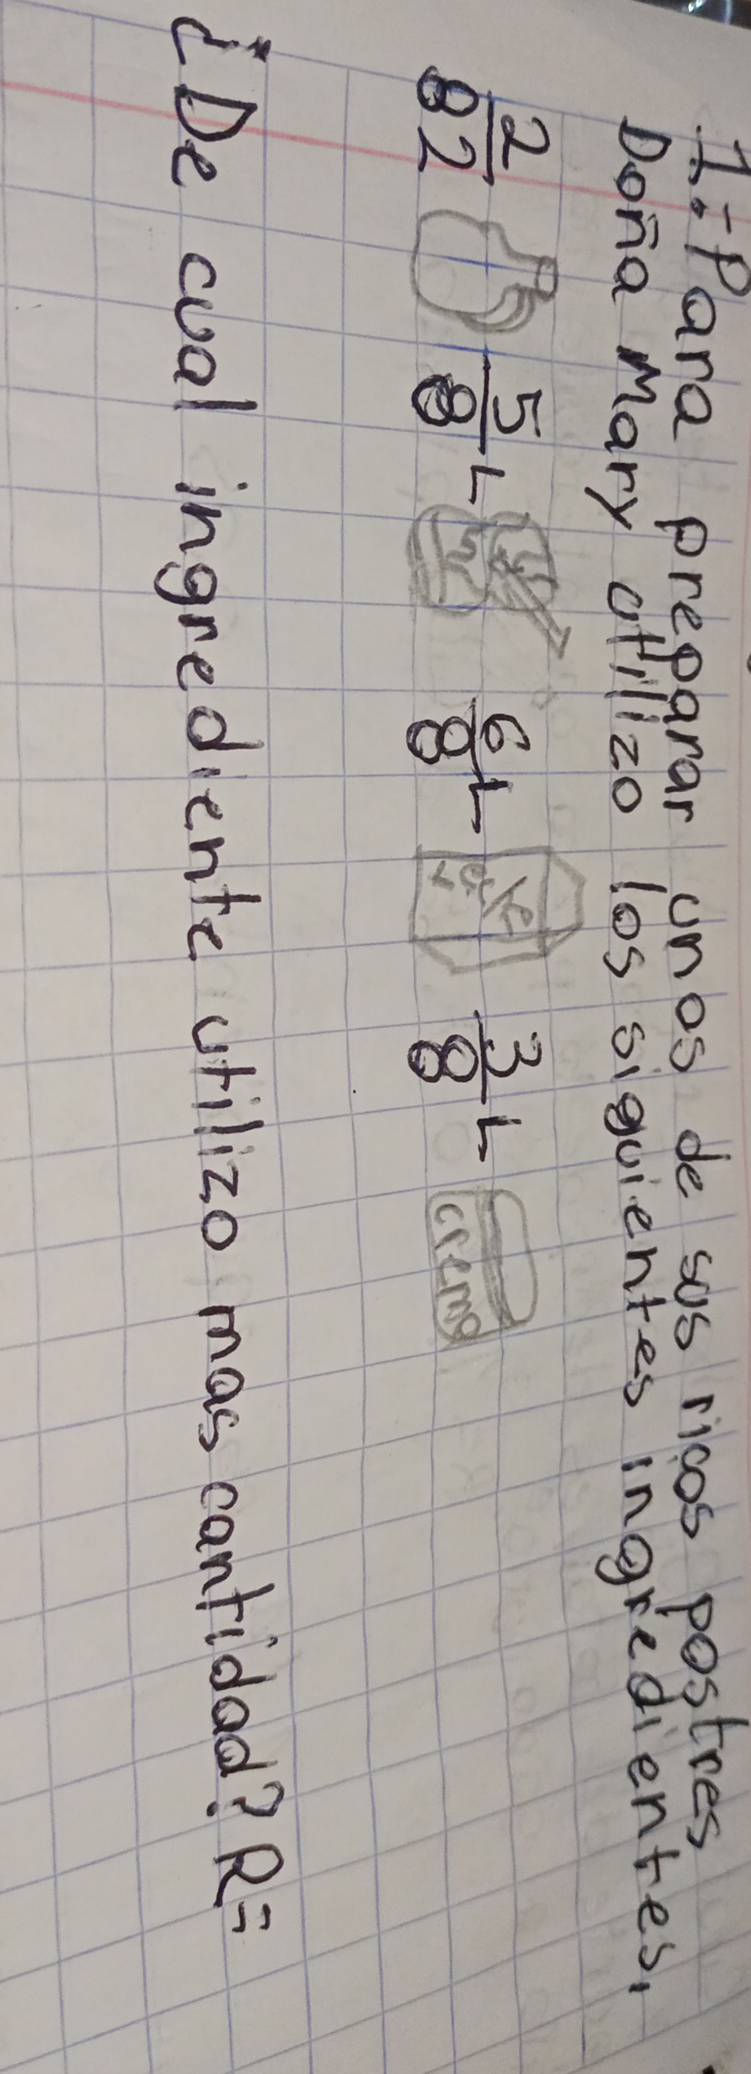 1.- Para preparar unos de sus ricos postres
Doña Mary utilizo los siguientes ingredientes,
2/8 L 5/8 L 6/8 L 3/8 L
crema
¿De cual ingrediente utilizo mas cantidad? R=